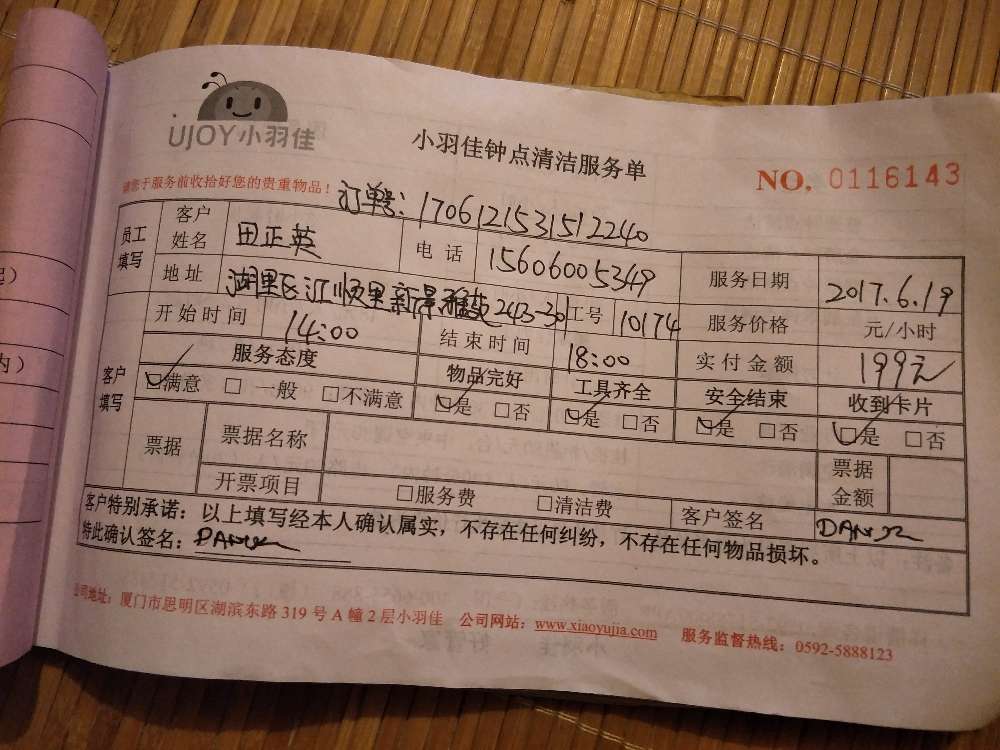 UJOY小羽佳
小羽佳钟点清洁服务单
NO. 0116143
请您于服务前收拾好您的贵重物品！
订单号：1706121531512240
员工填写 客户姓名 田正英 电话 15606005349 服务日期 2017.6.19
地址 湖里区江顺里新景雅苑243-30 工号 10174 服务价格 元/小时
开始时间 14:00 结束时间 18:00 实付金额 199元
客户填写 服务态度 物品完好 工具齐全 安全结束 收到卡片
☑满意 □一般 □不满意 ☑是 □否 ☑是 □否 ☑是 □否 ☑是 □否
票据 票据名称 票据金额
开票项目 □服务费 □清洁费 客户签名
客户特别承诺：以上填写经本人确认属实，不存在任何纠纷，不存在任何物品损坏。
特此确认签名：
公司地址：厦门市思明区湖滨东路319号A幢2层小羽佳 公司网站：www.xiaoyujia.com 服务监督热线：0592-5888123